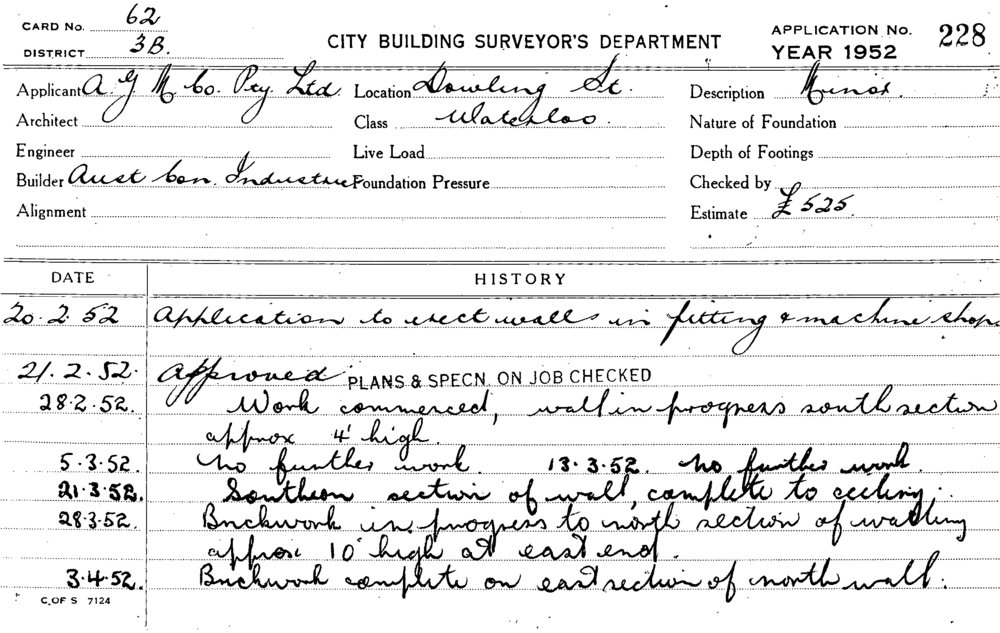 CARD No. 62
DISTRICT 3B.
CITY BUILDING SURVEYOR'S DEPARTMENT
APPLICATION No. 228
YEAR 1952
Applicant A G M Co. Pty. Ltd. Location Dowling St. Description Minor.
Architect Class Waterloo. Nature of Foundation
Engineer Live Load Depth of Footings
Builder Aust Con. Industries Foundation Pressure Checked by
Alignment Estimate £525.
DATE HISTORY
20.2.52 Application to erect walls in fitting & machine shops
21.2.52. Approved PLANS & SPECN. ON JOB CHECKED
28.2.52. Work commenced, wall in progress south section
approx 4' high.
5.3.52. No further work. 13.3.52. No further work.
21.3.52. Southern section of wall, complete to ceiling.
28.3.52. Brickwork in progress to north section of walling
approx 10' high at east end.
3.4.52. Brickwork complete on east section of north wall.
C. OF S 7124